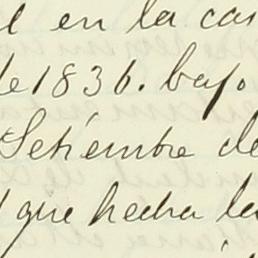 l en la cas
de 1836. bajo
Setiembre de
que hecha la